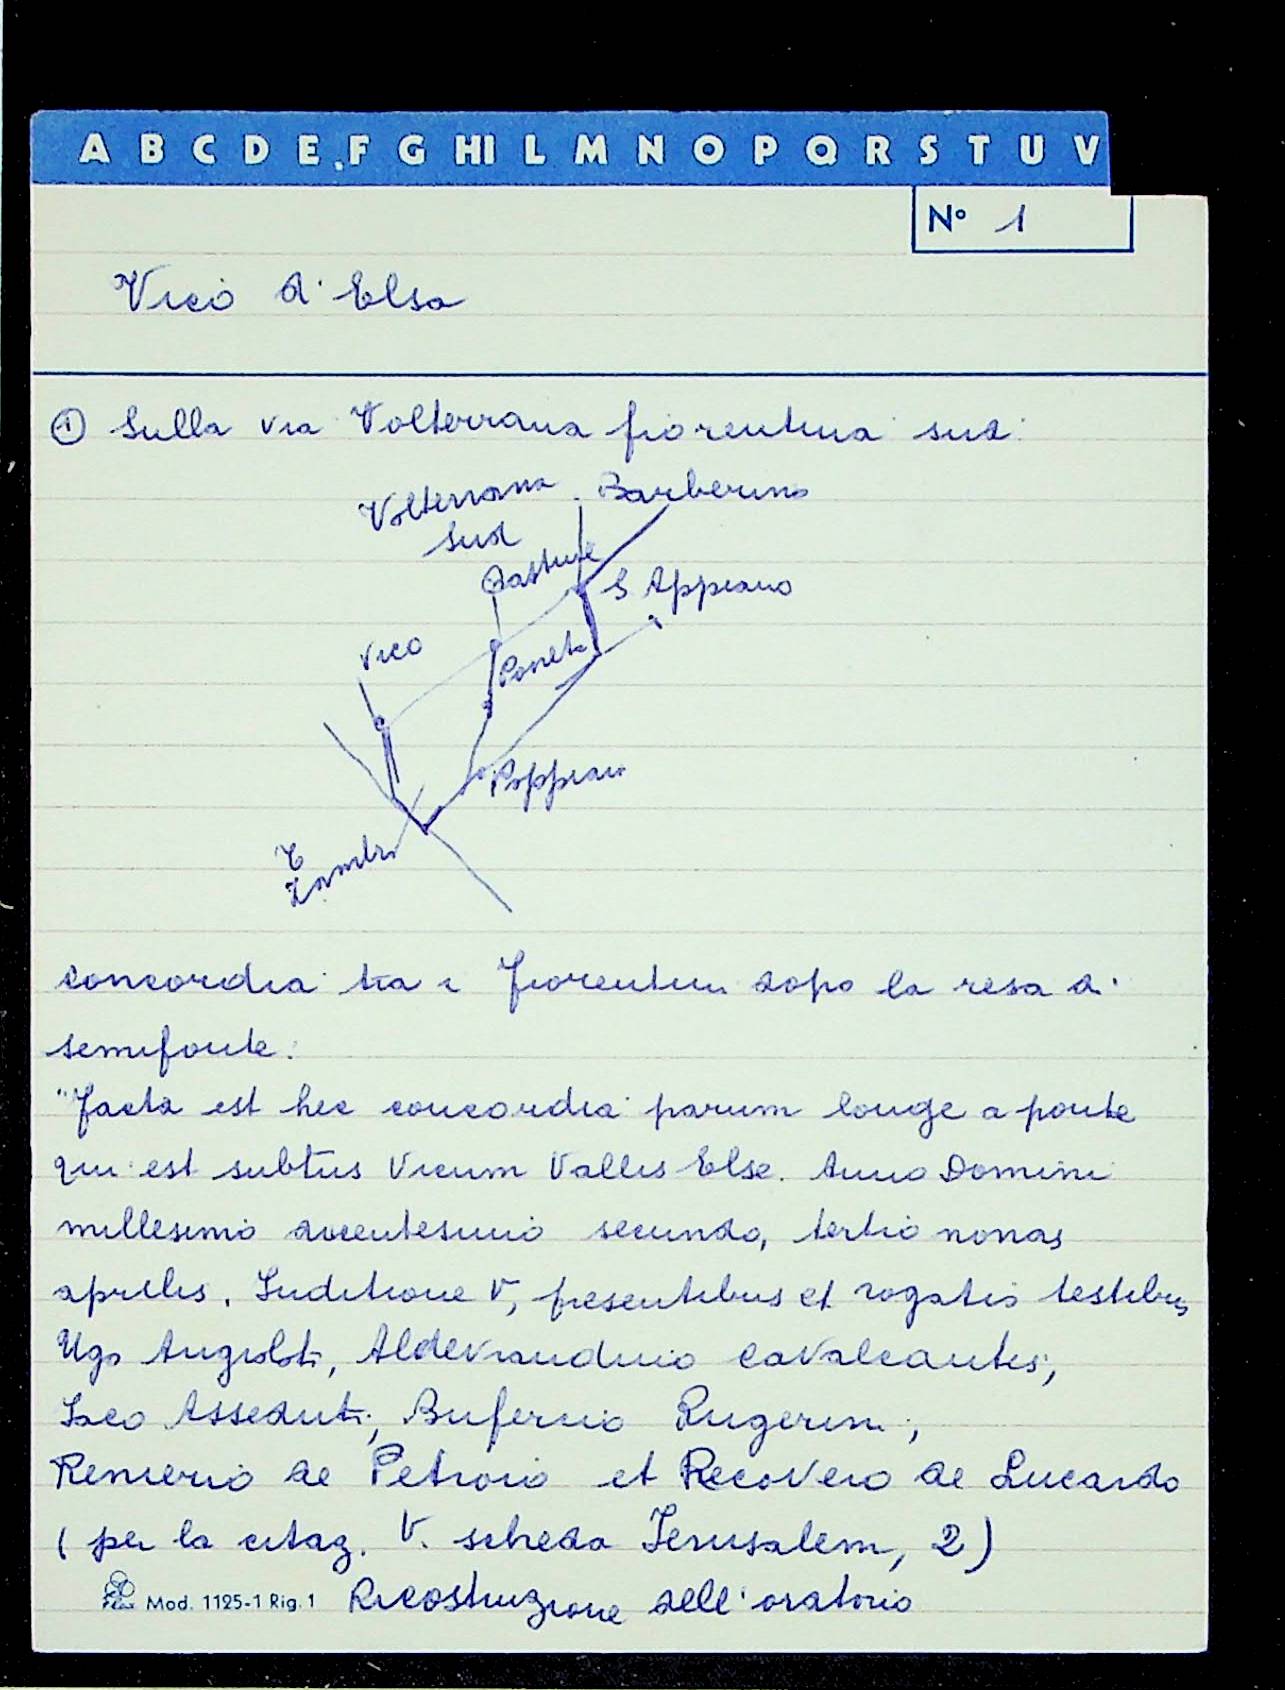 A B C D E F G HI L M N O P Q R S T U V
N° 1
Vico d'Elsa
① Sulla via Volterrana fiorentina sud:
Volterrana Barberino
sud
Pastine
S Appiano
Vico
Poneta
Poppiano
Zambra
concordia tra i fiorentini dopo la resa di
semifonte:
"facta est hec concordia parum longe a ponte
qui est subtus Vicum Vallis Else. Anno Domini
millesimo ducentesimo secundo, tertio nonas
aprilis. Inditione V, presentibus et rogatis testibus
Ugo Angioloti, Aldevrandino Cavalcantis,
Iaco Asseduti, Bufernio Rugerini,
Renierio de Petroio et Recovero de Lucardo
(per la citaz. V. scheda Jerusalem, 2)
Mod. 1125-1 Rig. 1 Ricostruzione dell'oratorio